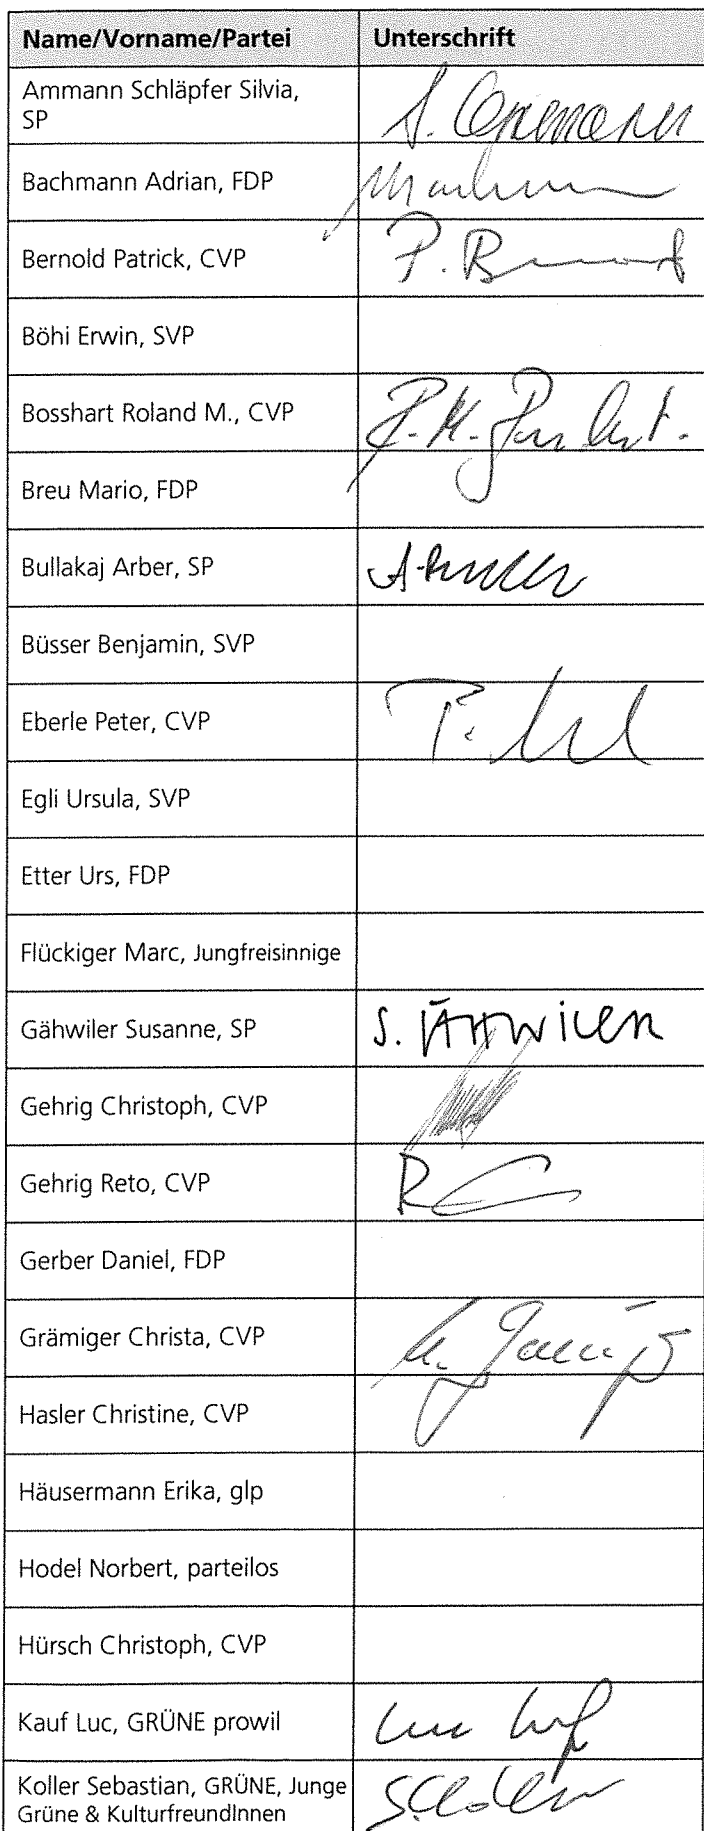 Name/Vorname/Partei Unterschrift
Ammann Schläpfer Silvia,
SP
Bachmann Adrian, FDP
Bernold Patrick, CVP P. B
Böhi Erwin, SVP
Bosshart Roland M., CVP R.M.
Breu Mario, FDP
Bullakaj Arber, SP
Büsser Benjamin, SVP
Eberle Peter, CVP
Egli Ursula, SVP
Etter Urs, FDP
Flückiger Marc, Jungfreisinnige
Gähwiler Susanne, SP S. GÄHWILER
Gehrig Christoph, CVP
Gehrig Reto, CVP
Gerber Daniel, FDP
Grämiger Christa, CVP
Hasler Christine, CVP
Häusermann Erika, glp
Hodel Norbert, parteilos
Hürsch Christoph, CVP
Kauf Luc, GRÜNE prowil
Koller Sebastian, GRÜNE, Junge
Grüne & KulturfreundInnen